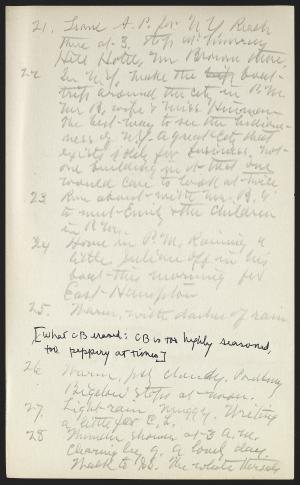 21. Leave A. P. for N.Y. Reach
there at 3. Stop at Murray
Hill Hotel, Mr Brown there.
22 In N.Y. make the boat-
trip around the city in P.M.
Mr B, wife & Miss
The best way to see the hideous-
ness of N.Y. A great city that
exists solely for business. Not
one building in it that one
would care to look at twice
23 Run about with Mr. B. &
to meet Emily & the children
in P.M.
24 Home in P.M. Raining a
little. Julian off in his
boat this morning for
East Hampton
25. Warm, with dashes of rain
[What CB erased: CB is too highly seasoned,
too peppery at times]
26 Warm, ptly cloudy. Poultney
Bigelow stops at noon.
27. Light rain muggy. Writing
a letter for C. L.
28 Thunder shower at 3 A.M.
Clearing by 9. A lovely day.
Walk to The whole